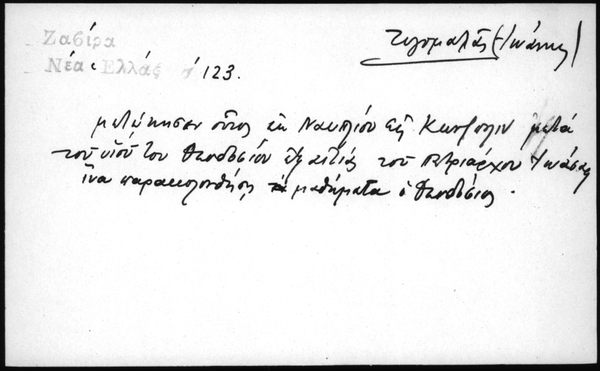 Ζαβίρα
Νέα Ἑλλάς 123.
Ζυγομαλᾶς (Ἰωάννης)
μετῴκησεν οὗτος ἐκ Ναυπλίου εἰς Κωνπολιν μετὰ
τοῦ υἱοῦ του Θεοδοσίου τοῦ Πατριάρχου Ἰωάσαφ
ἵνα παρακολουθήσῃ μαθήματα ὁ Θεοδόσιος.